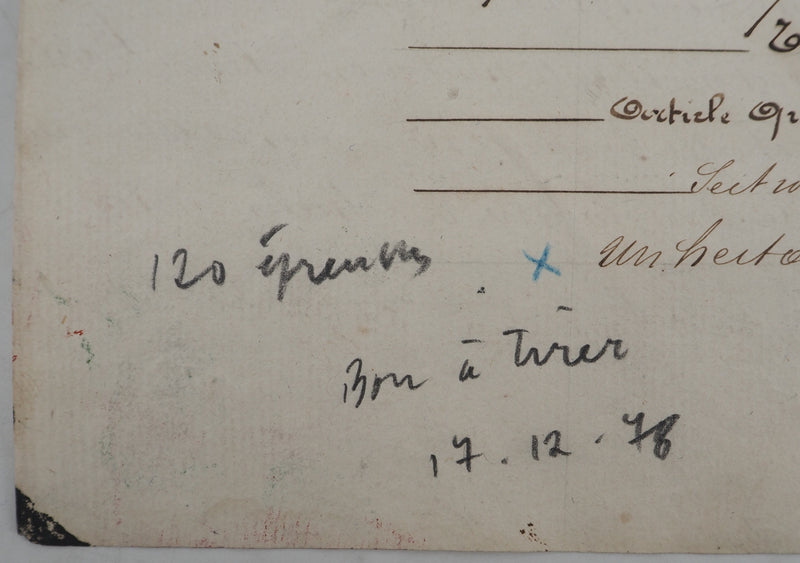 Article
Un hecta
120 épreuves x
Bon à tirer
17.12.78